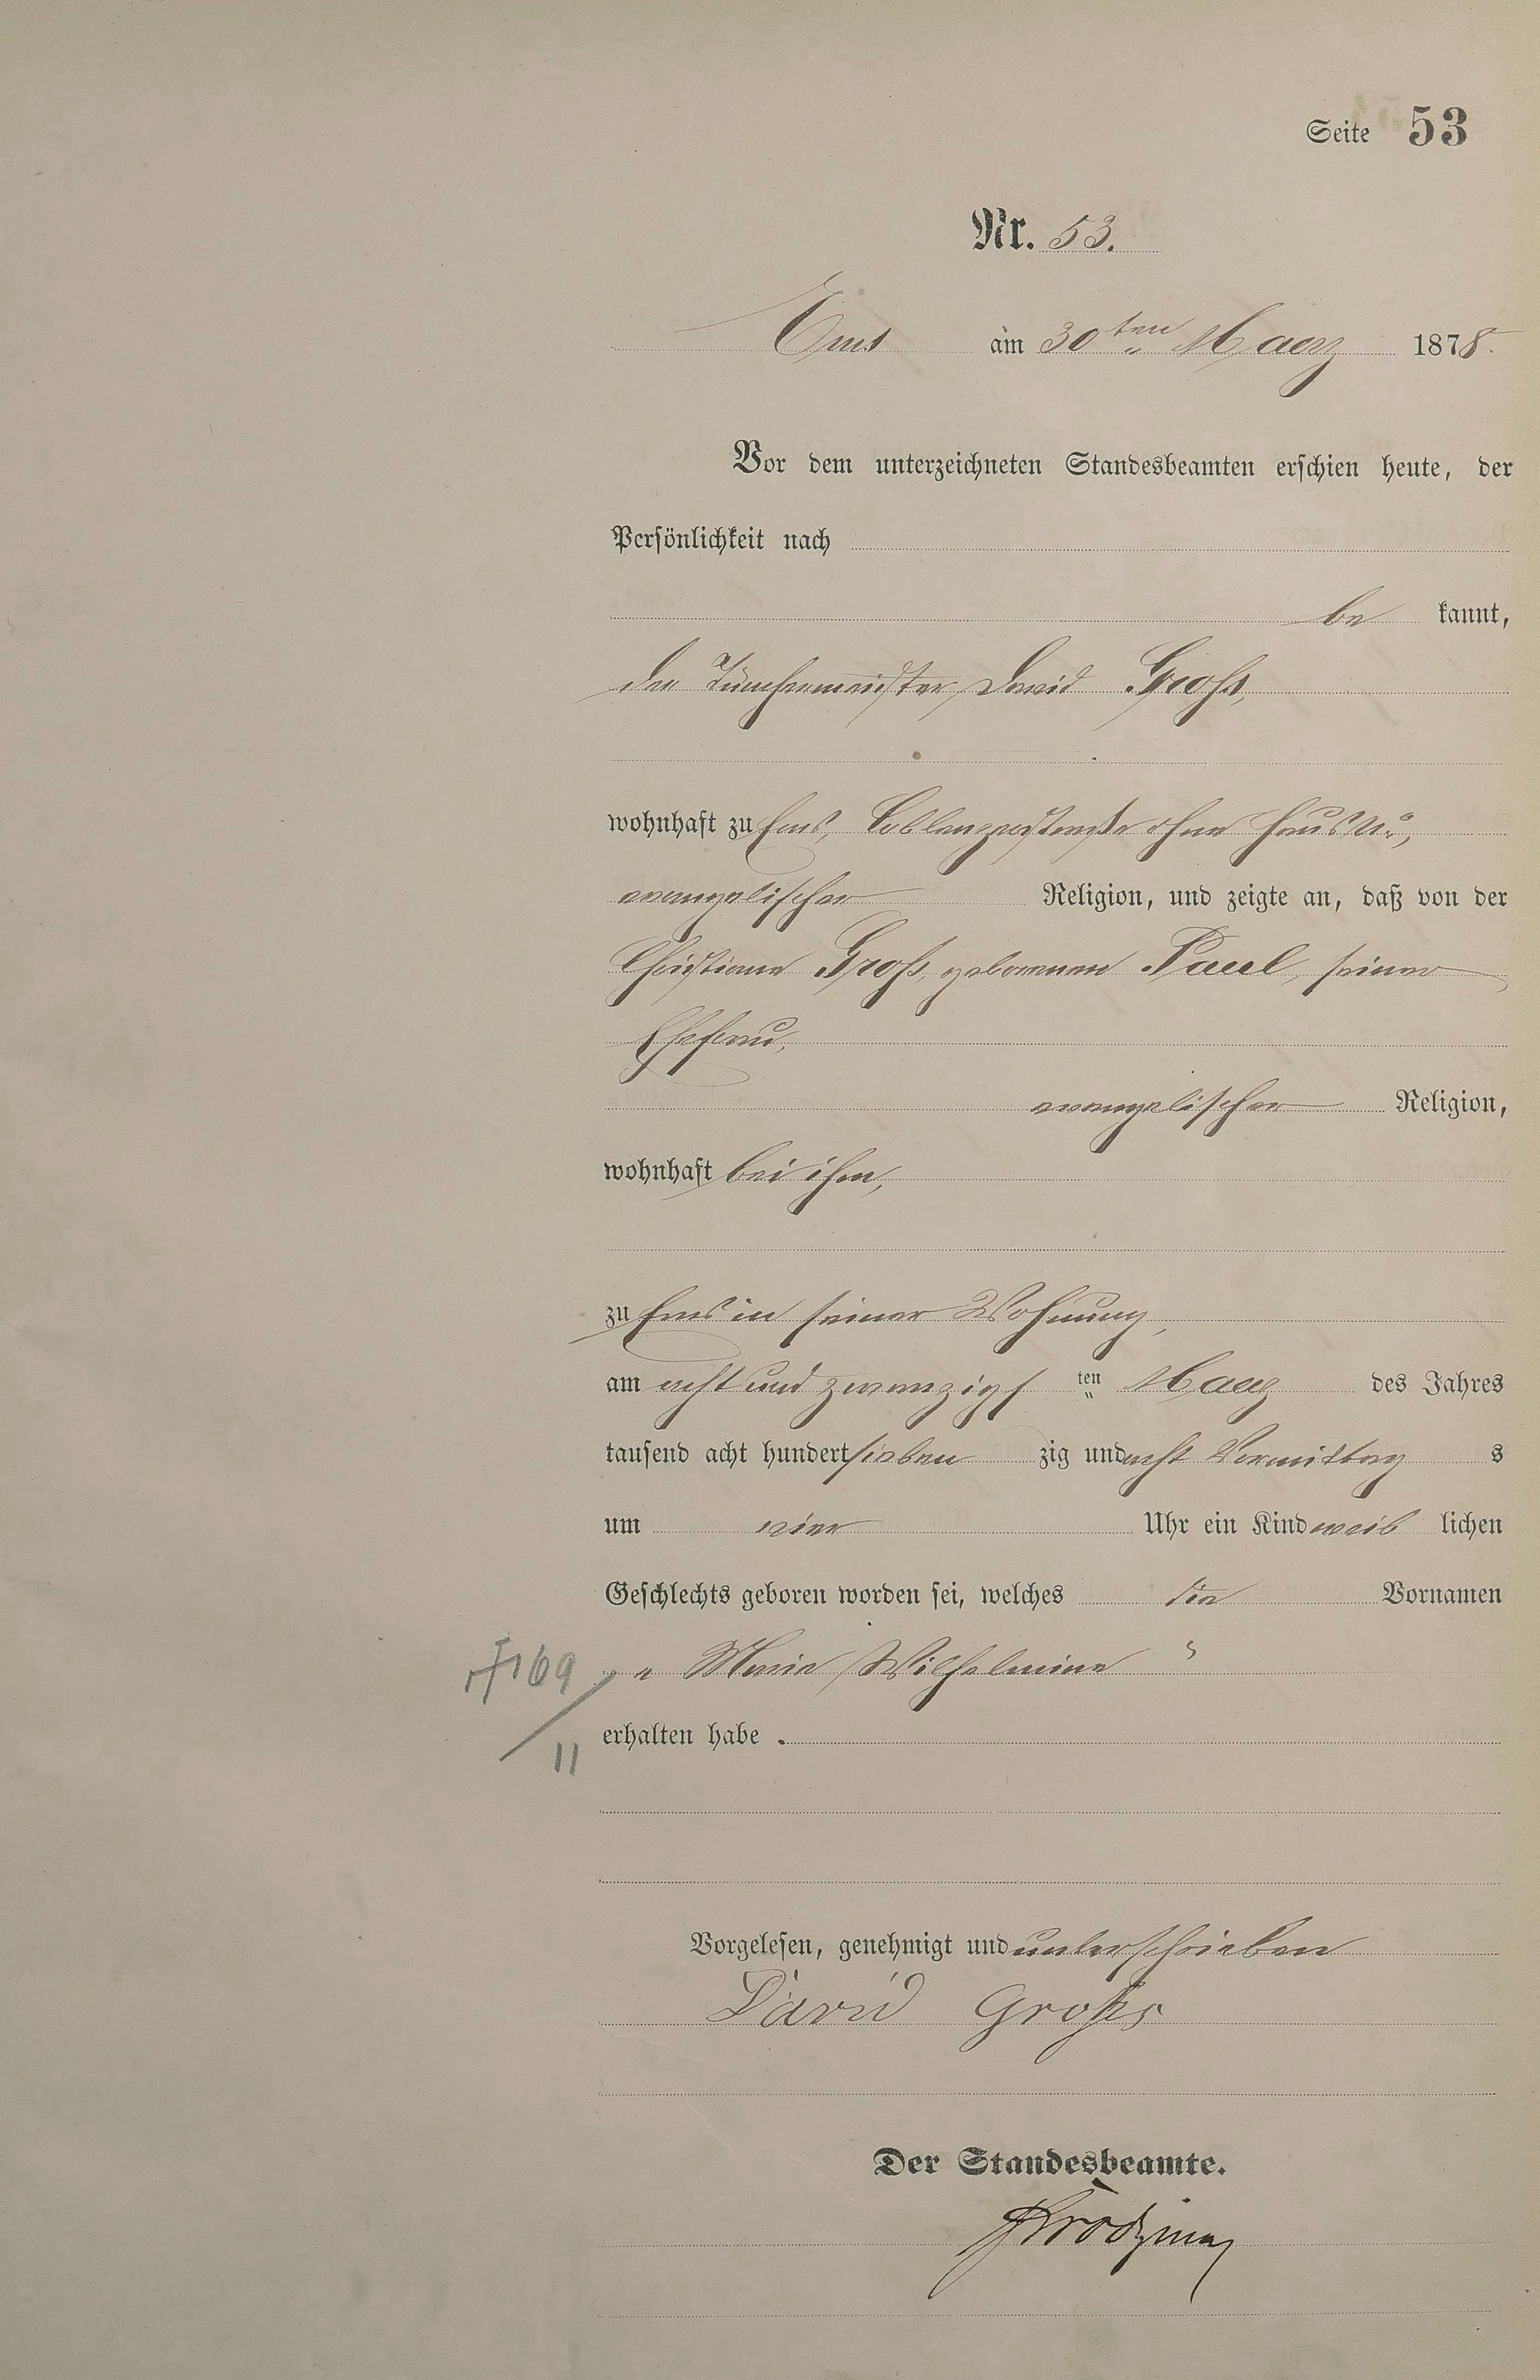 Seite 53
Nr. 53.
Ems am 30ten Maerz 1878.
Vor dem unterzeichneten Standesbeamten erschien heute, der
Persönlichkeit nach
be kannt,
der Tünchermeister David Groß,
wohnhaft zu Ems, Coblenzerstraße ohne Haus No,
evangelischer Religion, und zeigte an, daß von der
Christiane Groß, geborenen Paul, seiner
Ehefrau,
evangelischer Religion,
wohnhaft bei ihm,
zu Ems in seiner Wohnung,
am acht und zwanzigs ten Maerz des Jahres
tausend acht hundert sieben zig und acht Vormittag s
um vier Uhr ein Kind weib lichen
Geschlechts geboren worden sei, welches die Vornamen
„ Marie Wilhelmine “
11
erhalten habe .
Vorgelesen, genehmigt und unterschrieben
David Groß
Der Standesbeamte.